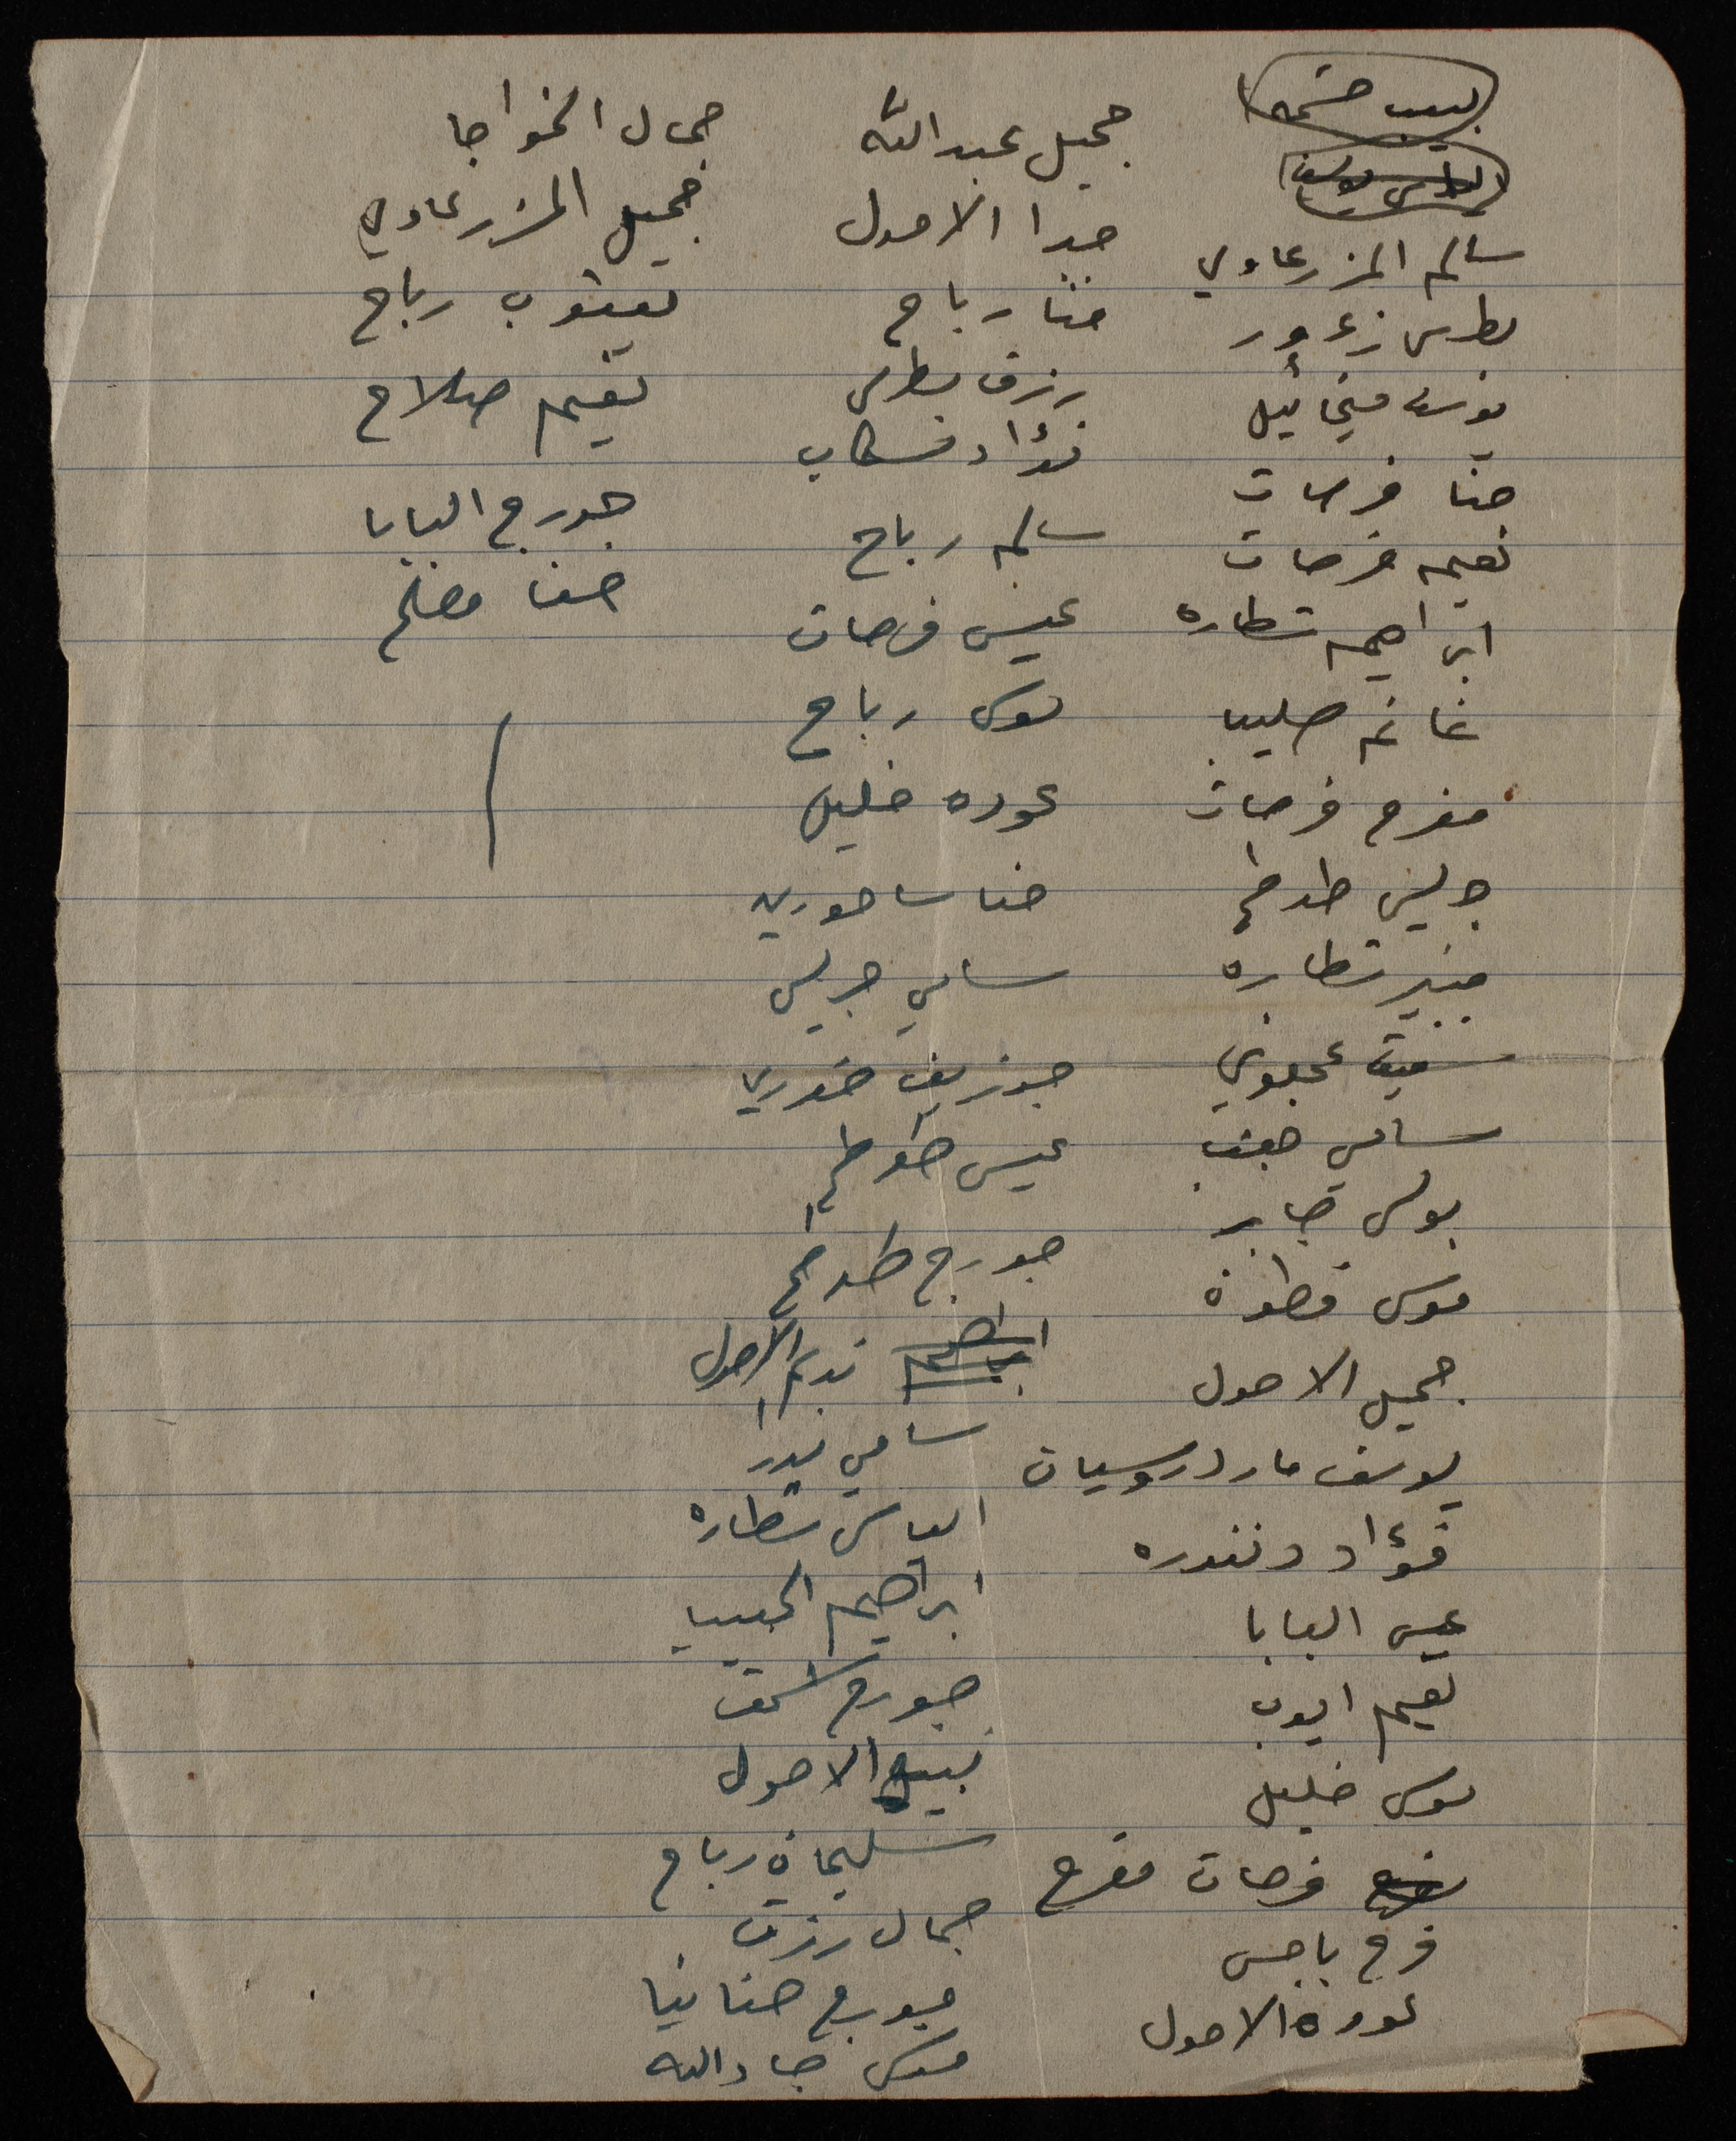 لبيب حشمه
سالم المزرعاوي
بطرس زعرور
يوسف ميخائيل
حنا فرحات
نعيم فرحات
ابراهيم شطاره
غانم صليبا
مفرح فرحات
جريس طوطح
منير شطاره
شفيق عجلوني
سامي
بولس جابر
موسى
جميل الاحول
يوسف ماردروسيان
فؤاد
عيسى البابا
نعيم ايوب
موسى خليل
فرحات مفرح
فرح باجس
عوده الاحول
جميل عبدالله
الاحول
حنا رباح
رزق بطرس
فؤاد
سالم رباح
عيسى فرحات
موسى رباح
عوده خليل
حنا ساحوريه
سامي جريس
جوزيف خوري
عيسى طوطح
جورج طوطح
ابراهيم نديم الاحول
سامي بدر
الياس شطاره
ابراهيم الحبيبا
جورج اسحق
نبيل الاحول
سليمان رباح
جمال رزق
جورج حنانيا
موسى جادالله
جمال الخواجا
جميل المزرعاوي
يعقوب رباح
نعيم صلاح
جورج البابا
حنا مصلح